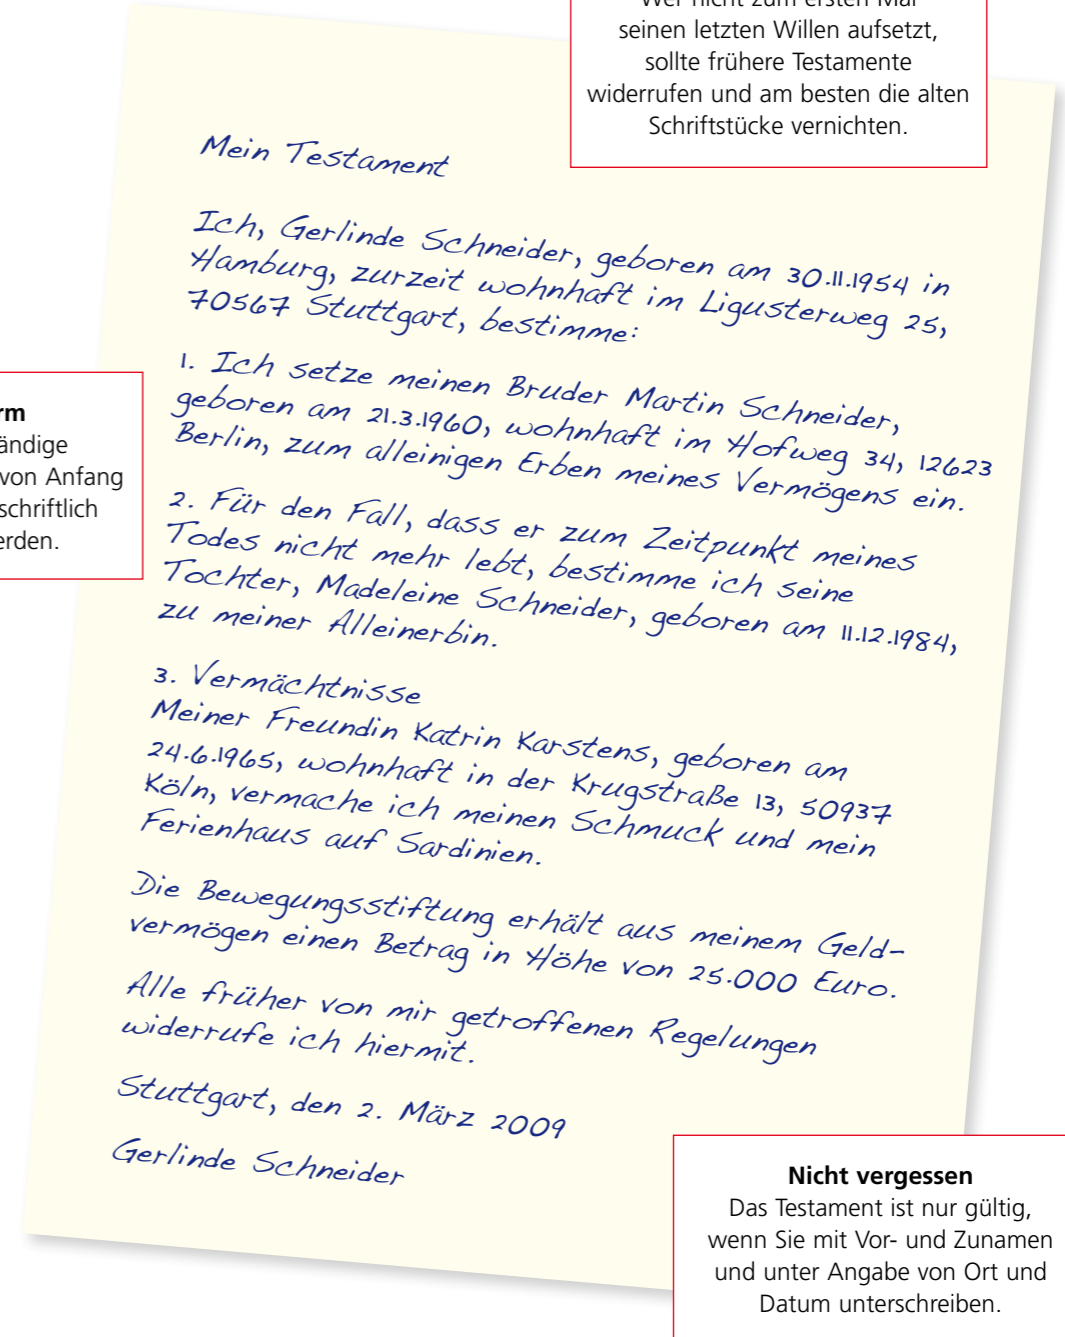 Wer nicht zum ersten Mal
seinen letzten Willen aufsetzt,
sollte frühere Testamente
widerrufen und am besten die alten
Schriftstücke vernichten.
Mein Testament
Ich, Gerlinde Schneider, geboren am 30.11.1954 in
Hamburg, zurzeit wohnhaft im Ligusterweg 25,
70567 Stuttgart, bestimme:
1. Ich setze meinen Bruder Martin Schneider,
geboren am 21.3.1960, wohnhaft im Hofweg 34, 12623
Berlin, zum alleinigen Erben meines Vermögens ein.
rm
ändige
von Anfang
schriftlich
erden.
2. Für den Fall, dass er zum Zeitpunkt meines
Todes nicht mehr lebt, bestimme ich seine
Tochter, Madeleine Schneider, geboren am 11.12.1984,
zu meiner Alleinerbin.
3. Vermächtnisse
Meiner Freundin Katrin Karstens, geboren am
24.6.1965, wohnhaft in der Krugstraße 13, 50937
Köln, vermache ich meinen Schmuck und mein
Ferienhaus auf Sardinien.
Die Bewegungsstiftung erhält aus meinem Geld-
vermögen einen Betrag in Höhe von 25.000 Euro.
Alle früher von mir getroffenen Regelungen
widerrufe ich hiermit.
Stuttgart, den 2. März 2009
Gerlinde Schneider
Nicht vergessen
Das Testament ist nur gültig,
wenn Sie mit Vor- und Zunamen
und unter Angabe von Ort und
Datum unterschreiben.